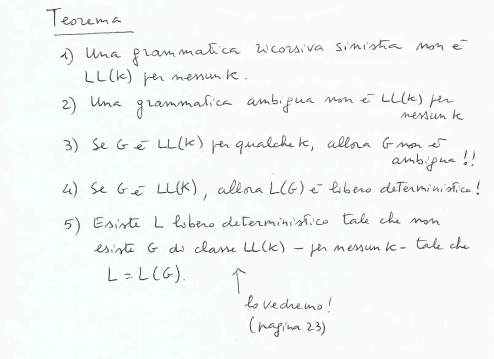 Teorema
1) Una grammatica ricorsiva sinistra non è
LL(k) per nessun k.
2) Una grammatica ambigua non è LL(k) per
nessun k
3) Se G è LL(k) per qualche k, allora G non è
ambigua!!
4) Se G è LL(k), allora L(G) è libero deterministico!
5) Esiste L libero deterministico tale che non
esiste G di classe LL(k) – per nessun k – tale che
L = L(G).
lo vedremo!
(pagina 23)